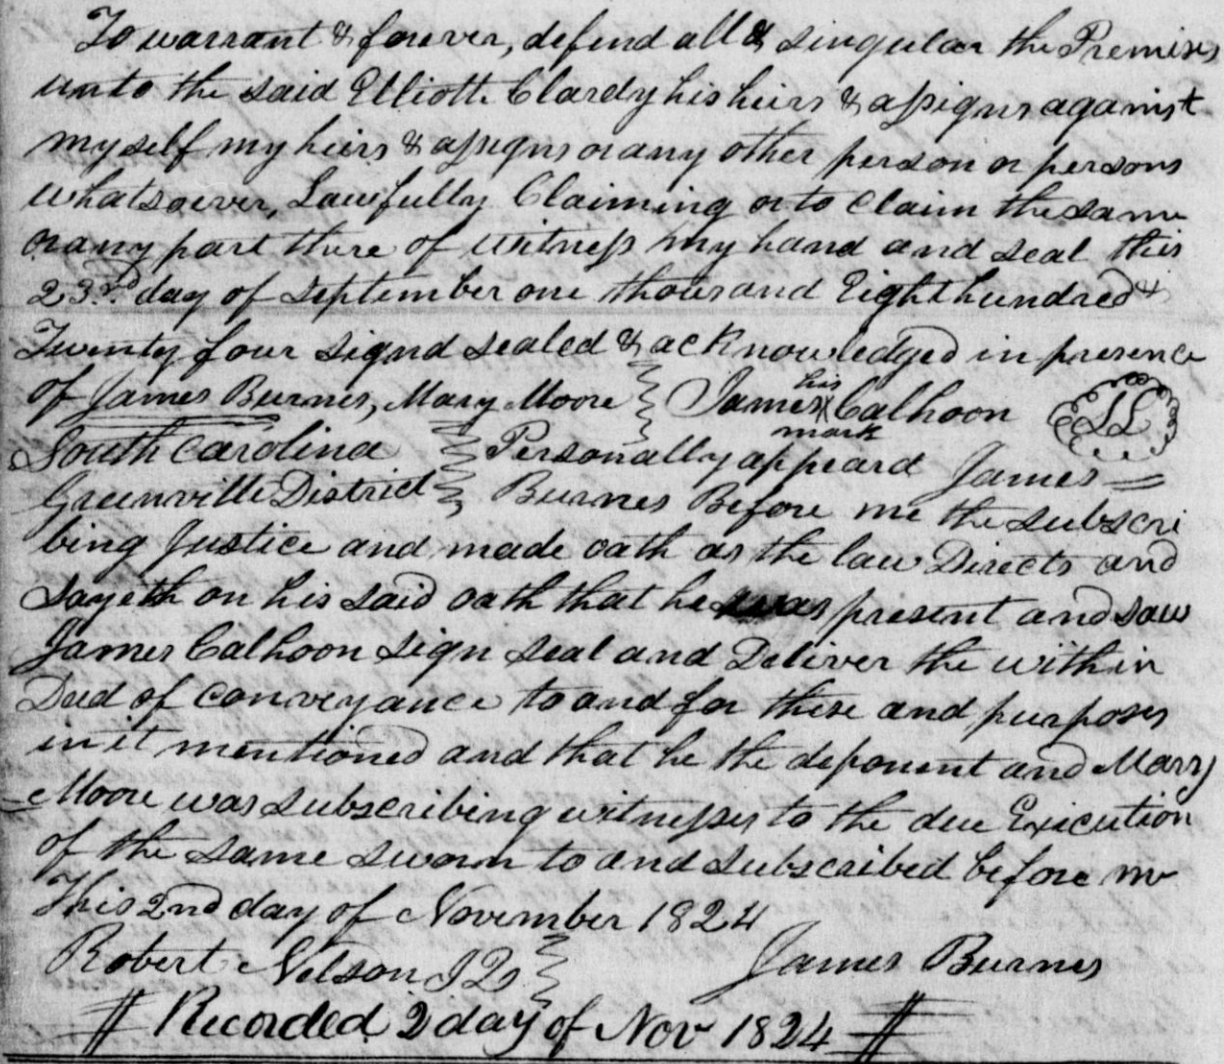 To warrant & forever, defend all & singular the Premises
unto the said Elliott Clardy his heirs & assigns against
myself my heirs & assigns or any other person or persons
whatsoever, Lawfully Claiming or to Claim the same
or any part there of witness my hand and seal this
23rd day of September one thousand Eight hundred &
Twenty four signd sealed & acknowledged in presence
of James Burnes, Mary Moore James his X mark Calhoon LS
South Carolina Personally appeard James
Greenville District Burnes Before me the subscri
bing Justice and made oath as the law Directs and
Sayeth on his said oath that he was present and saw
James Calhoon sign seal and Deliver the within
Deed of conveyance to and for these and purposes
in it mentioned and that he the deponent and Mary
Moore was subscribing witnesses to the due Execution
of the same sworn to and subscribed before me
This 2nd day of November 1824
Robert Nelson JQ James Burnes
Recorded 2 day of Nov 1824